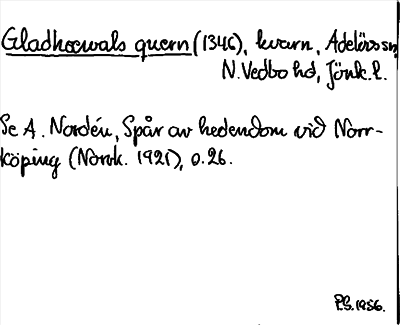 Gladhoewals quern (1346), kvarn, Adelövs sn,
N. Vedbo hd, Jönk. l.
Se A. Nordén, Spår av hedendom vid Norr-
köping (Norrk. 1921), s. 26.
P.S. 1956.